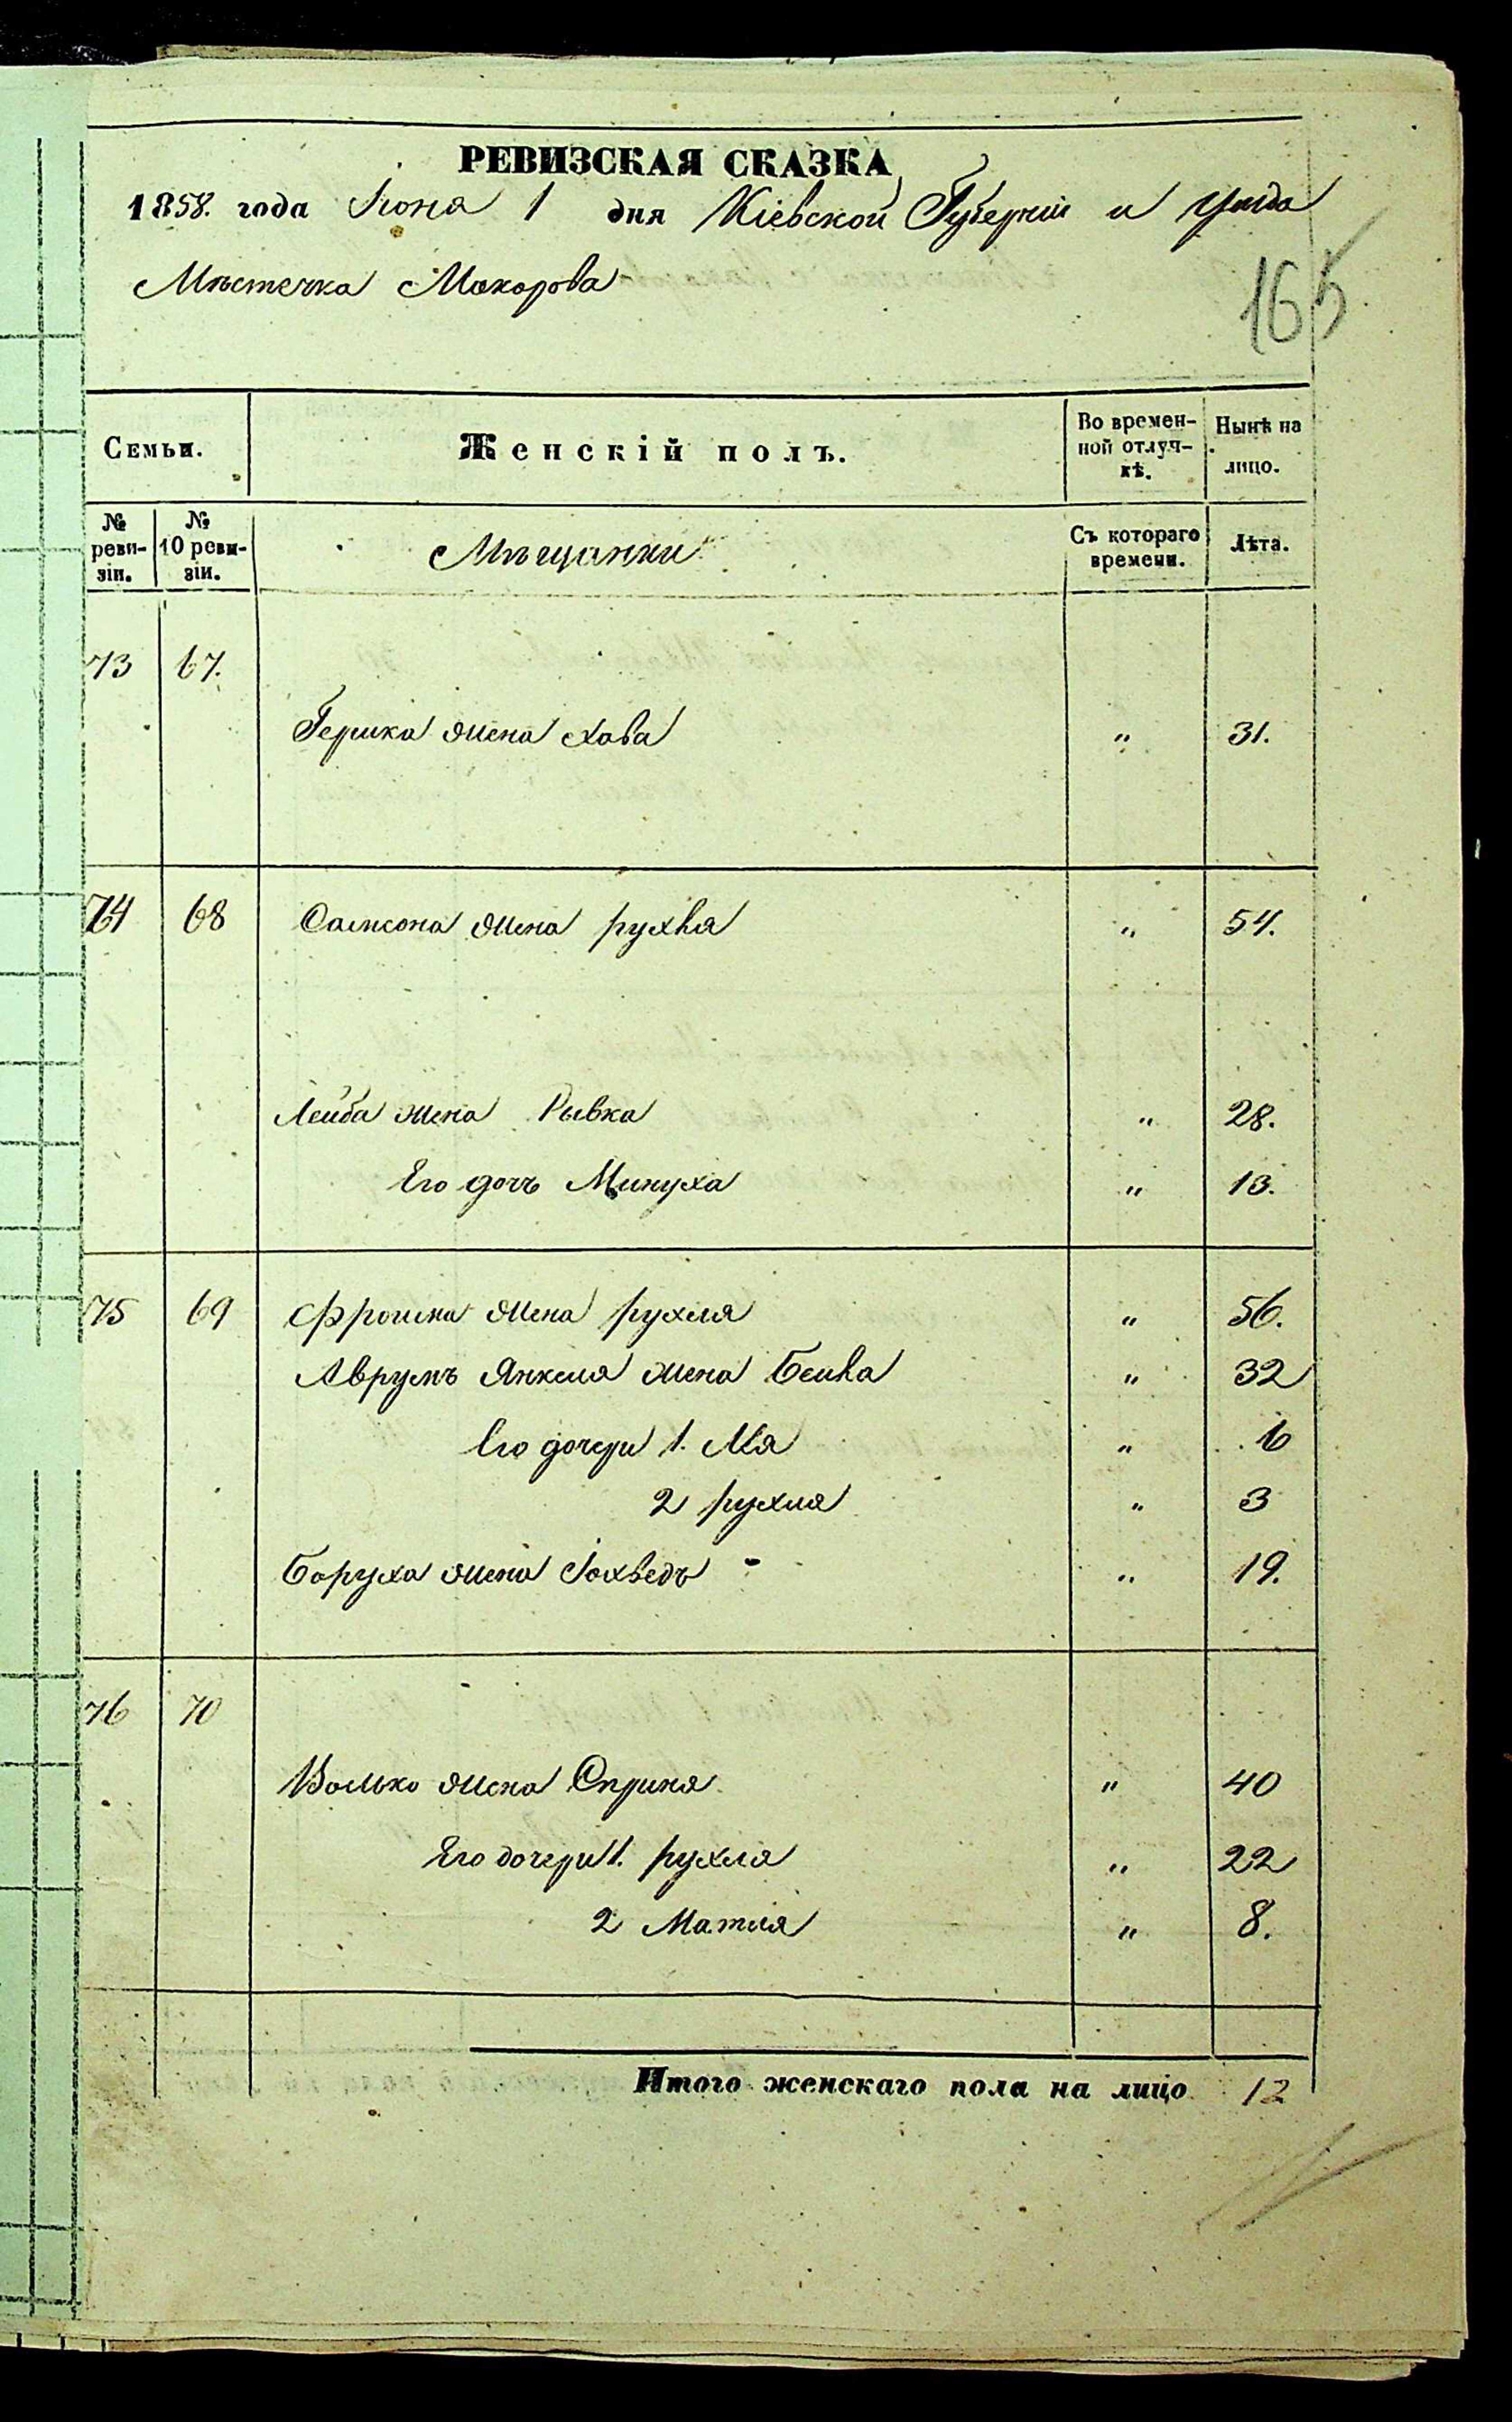 РЕВИЗСКАЯ СКАЗКА
1858. года Іюня 1 дня Кіевской Губерніи и уѣзда
Мѣстечка Макорова
165
Семьи.
Женскій полъ.
Во времен-
ной отлуч-
кѣ.
Нынѣ на
лицо.
№
реви-
зіи.
№
10 реви-
зіи.
Мѣщанки
Съ котораго
времени.
Лѣта.
73 67.
Гершка жена Хава " 31.
74 68 Самсона жена рухля " 54.
Лейба жена Рывка " 28.
Его дочь Минуха " 13.
75 69 Фроима жена рухля " 56.
Аврумъ Янкеля жена Бейла " 32
Его дочери 1. " 6
2 рухля " 3
Боруха жена Іохведъ " 19.
76 70
Волько жена Сприня " 40
Его дочери 1. рухля " 22
2 Матля " 8.
Итого женскаго пола на лицо 12